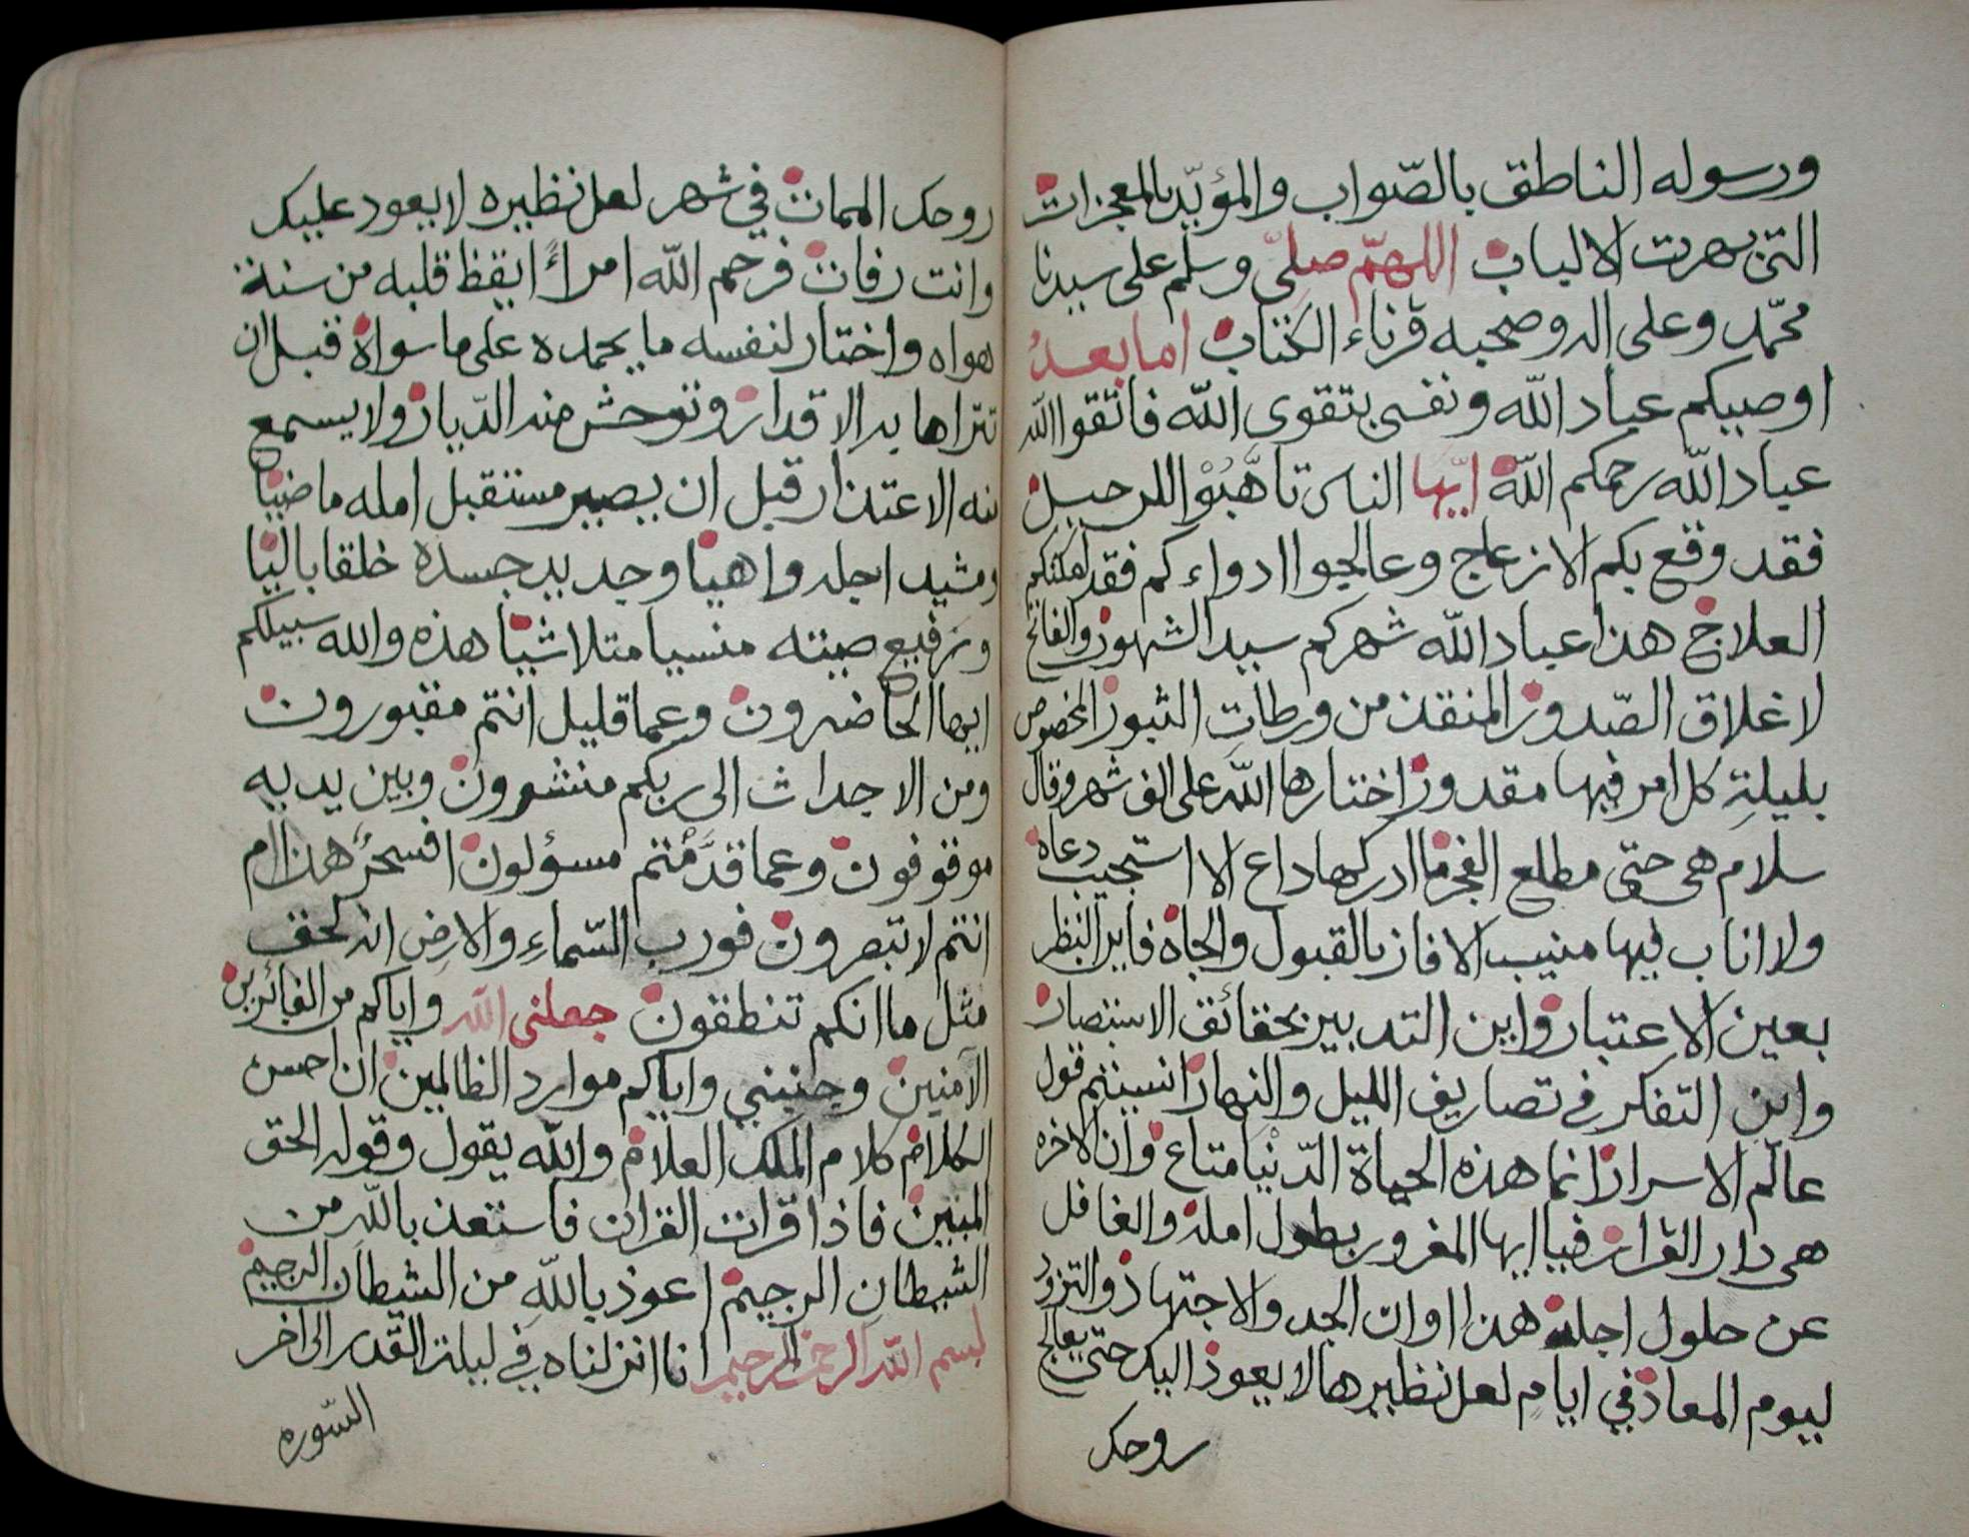 ورسوله الناطق بالصّواب والمؤيّد بالمعجزات
التى بهرت الالباب اللهمّ صلّى وسلم على سيدنا
محمّد وعلى اله وصحبه قرناء الكتاب امابعدُ
اوصيكم عباد الله ونفسى بتقوى الله فاتقوا الله
عباد الله رحمكم الله ايّها الناس تاهَّبُوْا للرحيل
فقد وقع بكم الازعاج وعالجوا ادواءكم فقد امكنكم
العلاج هذا عباد الله شهركم سيد الشهور والفاتح
لاغلاق الصّدور المنقذ من ورطات الثبور المخصوص
بليلةِ كل امر فيها مقدور اختارها الله على الف شهر وقال
سلام هى حتى مطلع الفجر ما ادركها داع الا استجيب دعاه
ولا اناب فيها منيب الا فاز بالقبول والجاه فاين النظر
بعين الاعتبار واين التدبير بحقائق الاستبصار
واين التفكر فى تصاريف الليل والنهار انسيتم قول
عالم الاسرار انما هذه الحياة الدّنيا متاع وان الاخره
هى دار القرار فيا ايها المغرور بطول امله والغافل
عن حلول اجله هذا اوان الجد والاجتهاد والتزود
ليوم المعاد في ايام لعل نظيرها لا يعود اليك حتى يعالج
روحك
روحك الممات في شهر لعل نظيره لا يعود عليك
وانت رفات فرحم الله امراً ايقظ قلبه من سنة
هواه واختار لنفسه ما يحمده على ما سواه قبل ان
تتراها يد الاقدار وتوحش منه الدّيار ولا يسمع
منه الاعتذار قبل ان يصير مستقبل امله ماضيا
ومشيد اجله واهيا وجديد جسده خلقا باليا
ورفيع صيته منسيا متلاشيا هذه والله سبيلكم
ايها الحاضرون وعما قليل انتم مقبورون
ومن الاجداث الى ربكم منشرون وبين يديه
موقوفون وعما قدَّمْتم مسؤلون افسحرٌ هذا ام
انتم لا تبصرون فورب السّماءِ والارضِ انه لحق
مثل ما انكم تنطقون جعلنى الله واياكم من الفائزين
الآمنين وجنبني واياكم موارد الظالمين ان احسن
الكلام كلام الملك العلام والله يقول وقوله الحق
المبين فاذا قرات القران فاستعذ باللهِ من
الشيطان الرجيم اعوذ باللهِ من الشيطان الرجيم
بسم الله الرحمن الرحيم انا انزلناه في ليلة القدر الى اخر
السّوره